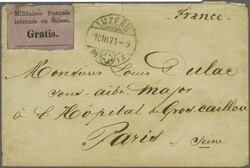 Militaires français
internés en Suisse.
Gratis.
LUZERN
10 III 71 - 9
France.
Monsieur Louis Dulac
sous-aide major
à l'Hôpital du Gros caillou
Paris
Seine